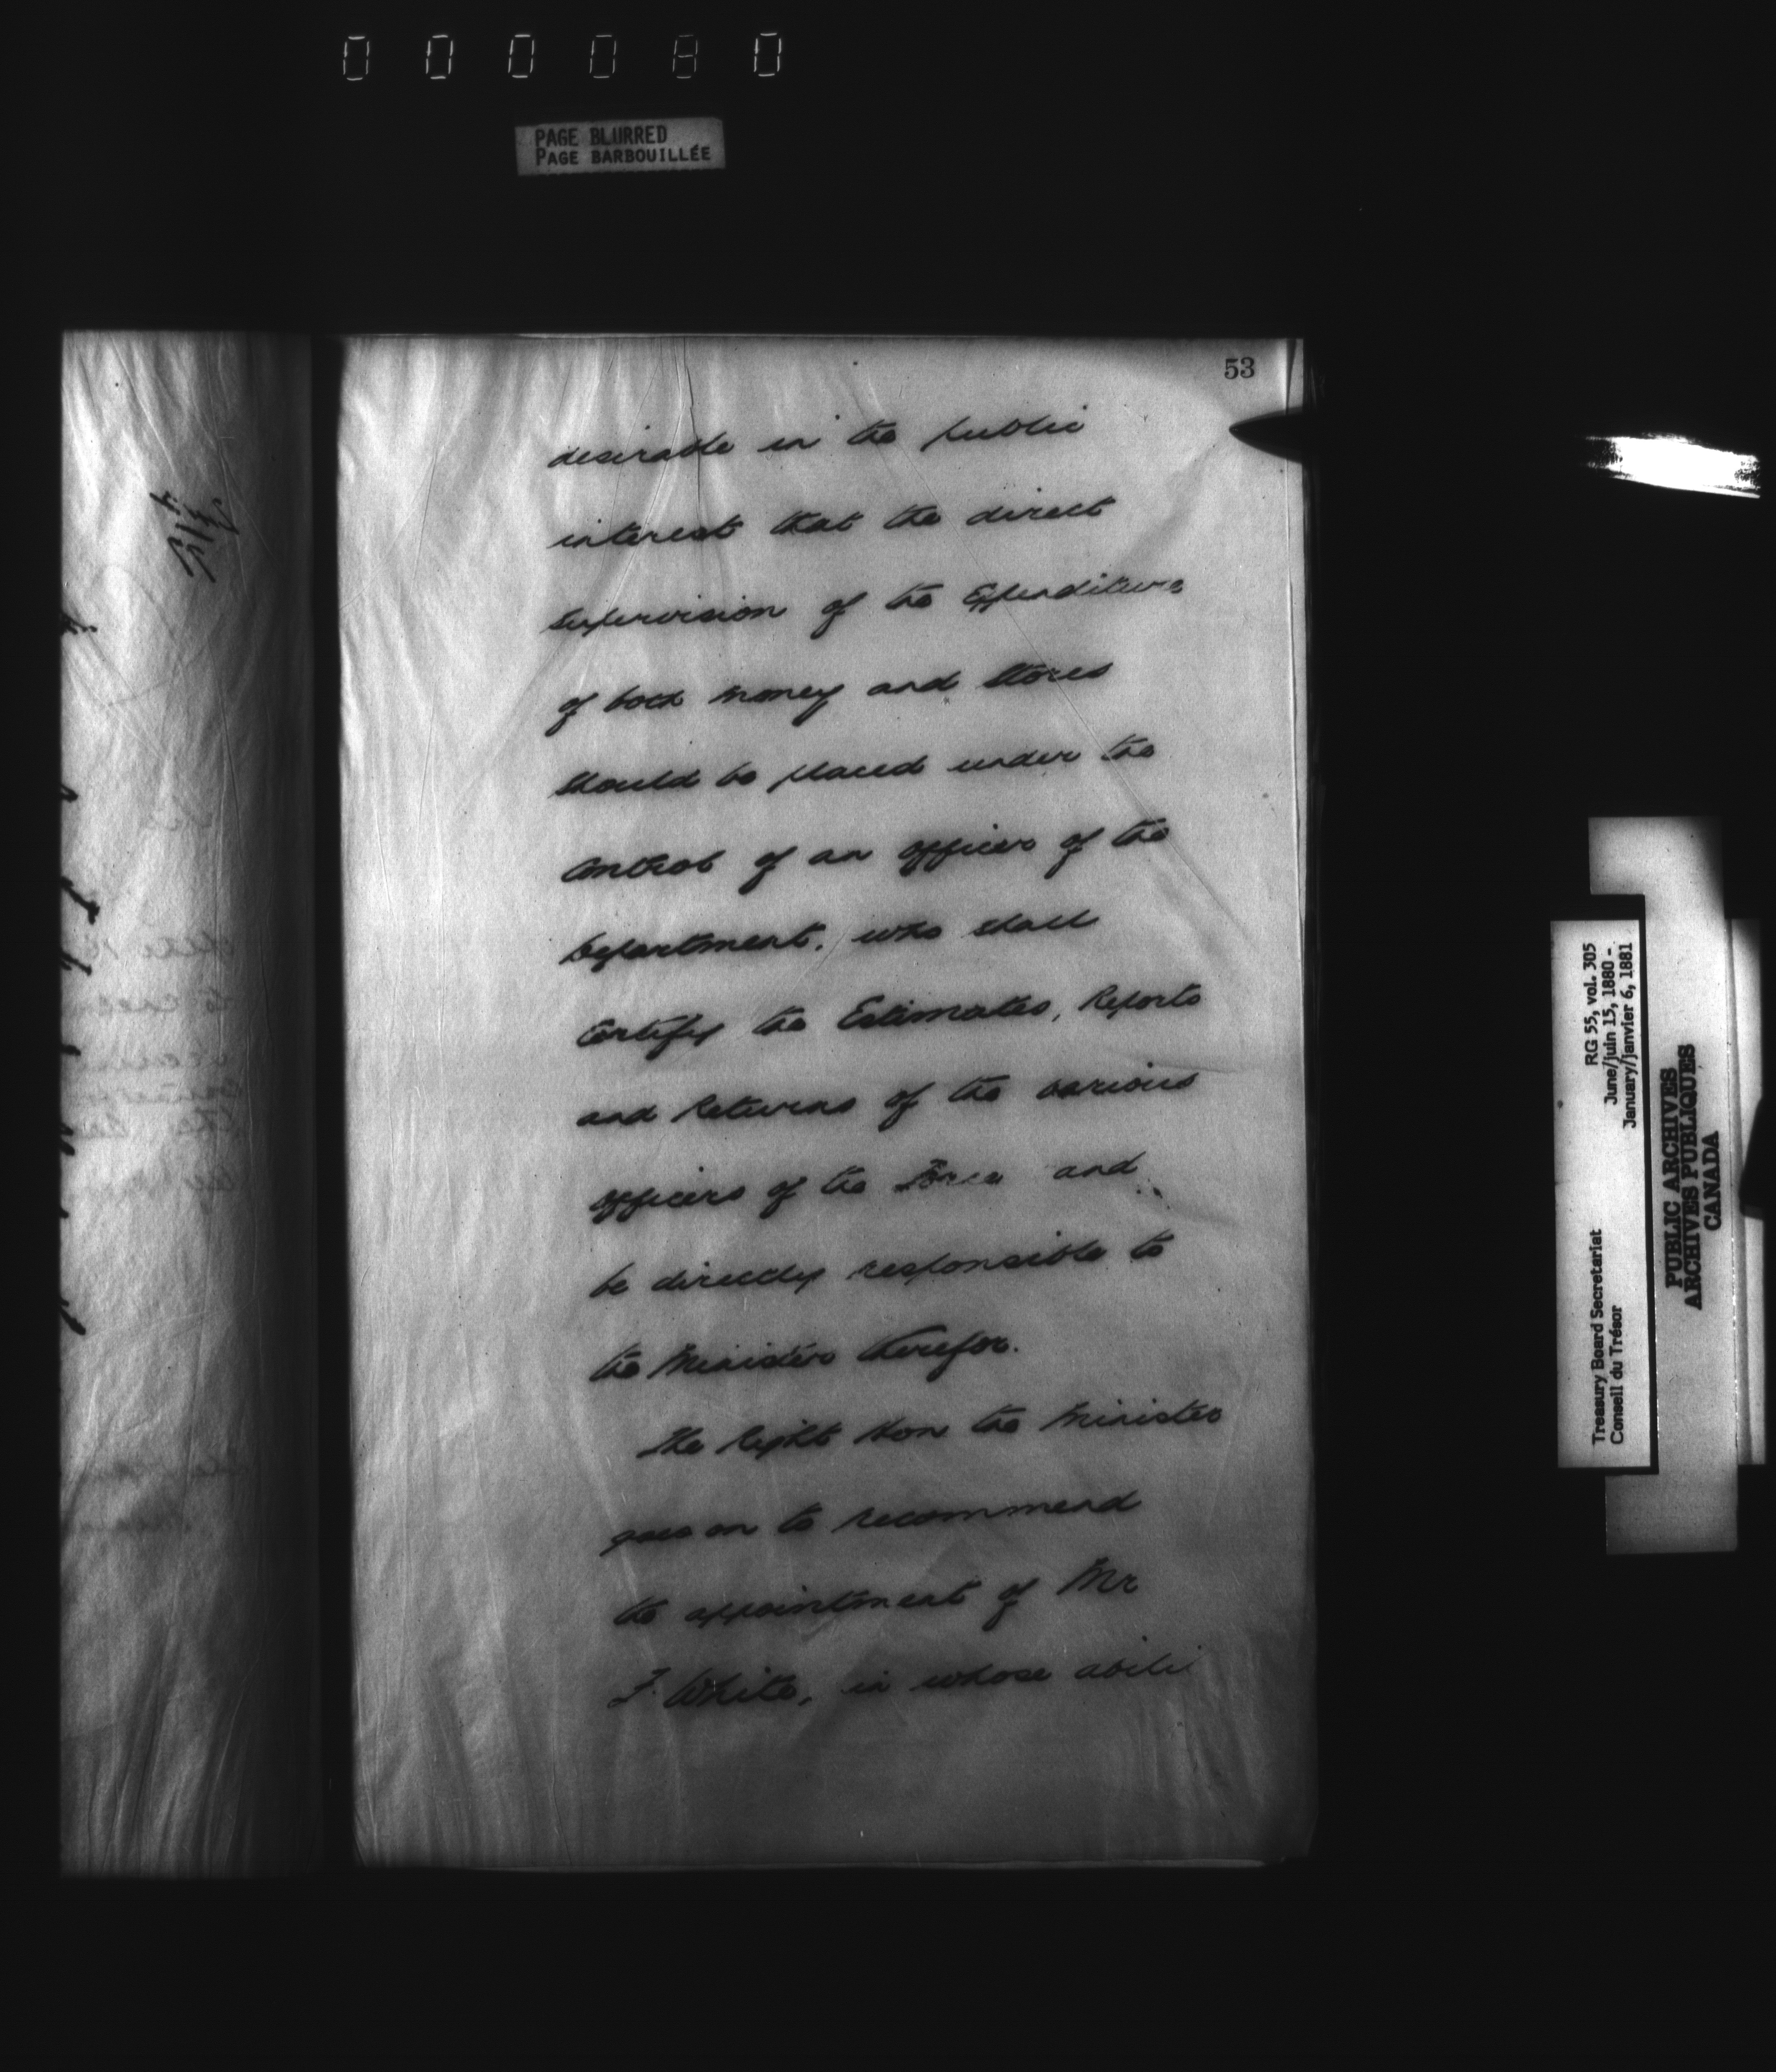 000080
PAGE BLURRED
PAGE BARBOUILLÉE
53
desirable in the public
interest that the direct
supervision of the Expenditure
of both money and stores
should be placed under the
control of an officer of the
Department, who shall
certify the Estimates, Reports
and Returns of the various
officers of the Force and
be directly responsible to
the Minister therefor.
The Right Hon the Minister
goes on to recommend
the appointment of Mr
F. White, in whose abili
RG 55, vol. 305
June/juin 15, 1880 -
January/janvier 6, 1881
Treasury Board Secretariat
Conseil du Trésor
PUBLIC ARCHIVES
ARCHIVES PUBLIQUES
CANADA